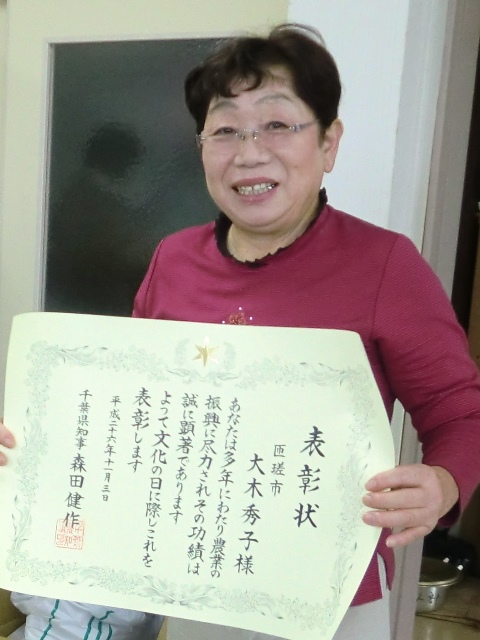 表彰状
匝瑳市
大木秀子様
あなたは多年にわたり農業の
振興に尽力されその功績は
誠に顕著であります
よって文化の日に際しこれを
表彰します
平成二十六年十一月三日
千葉県知事 森田健作